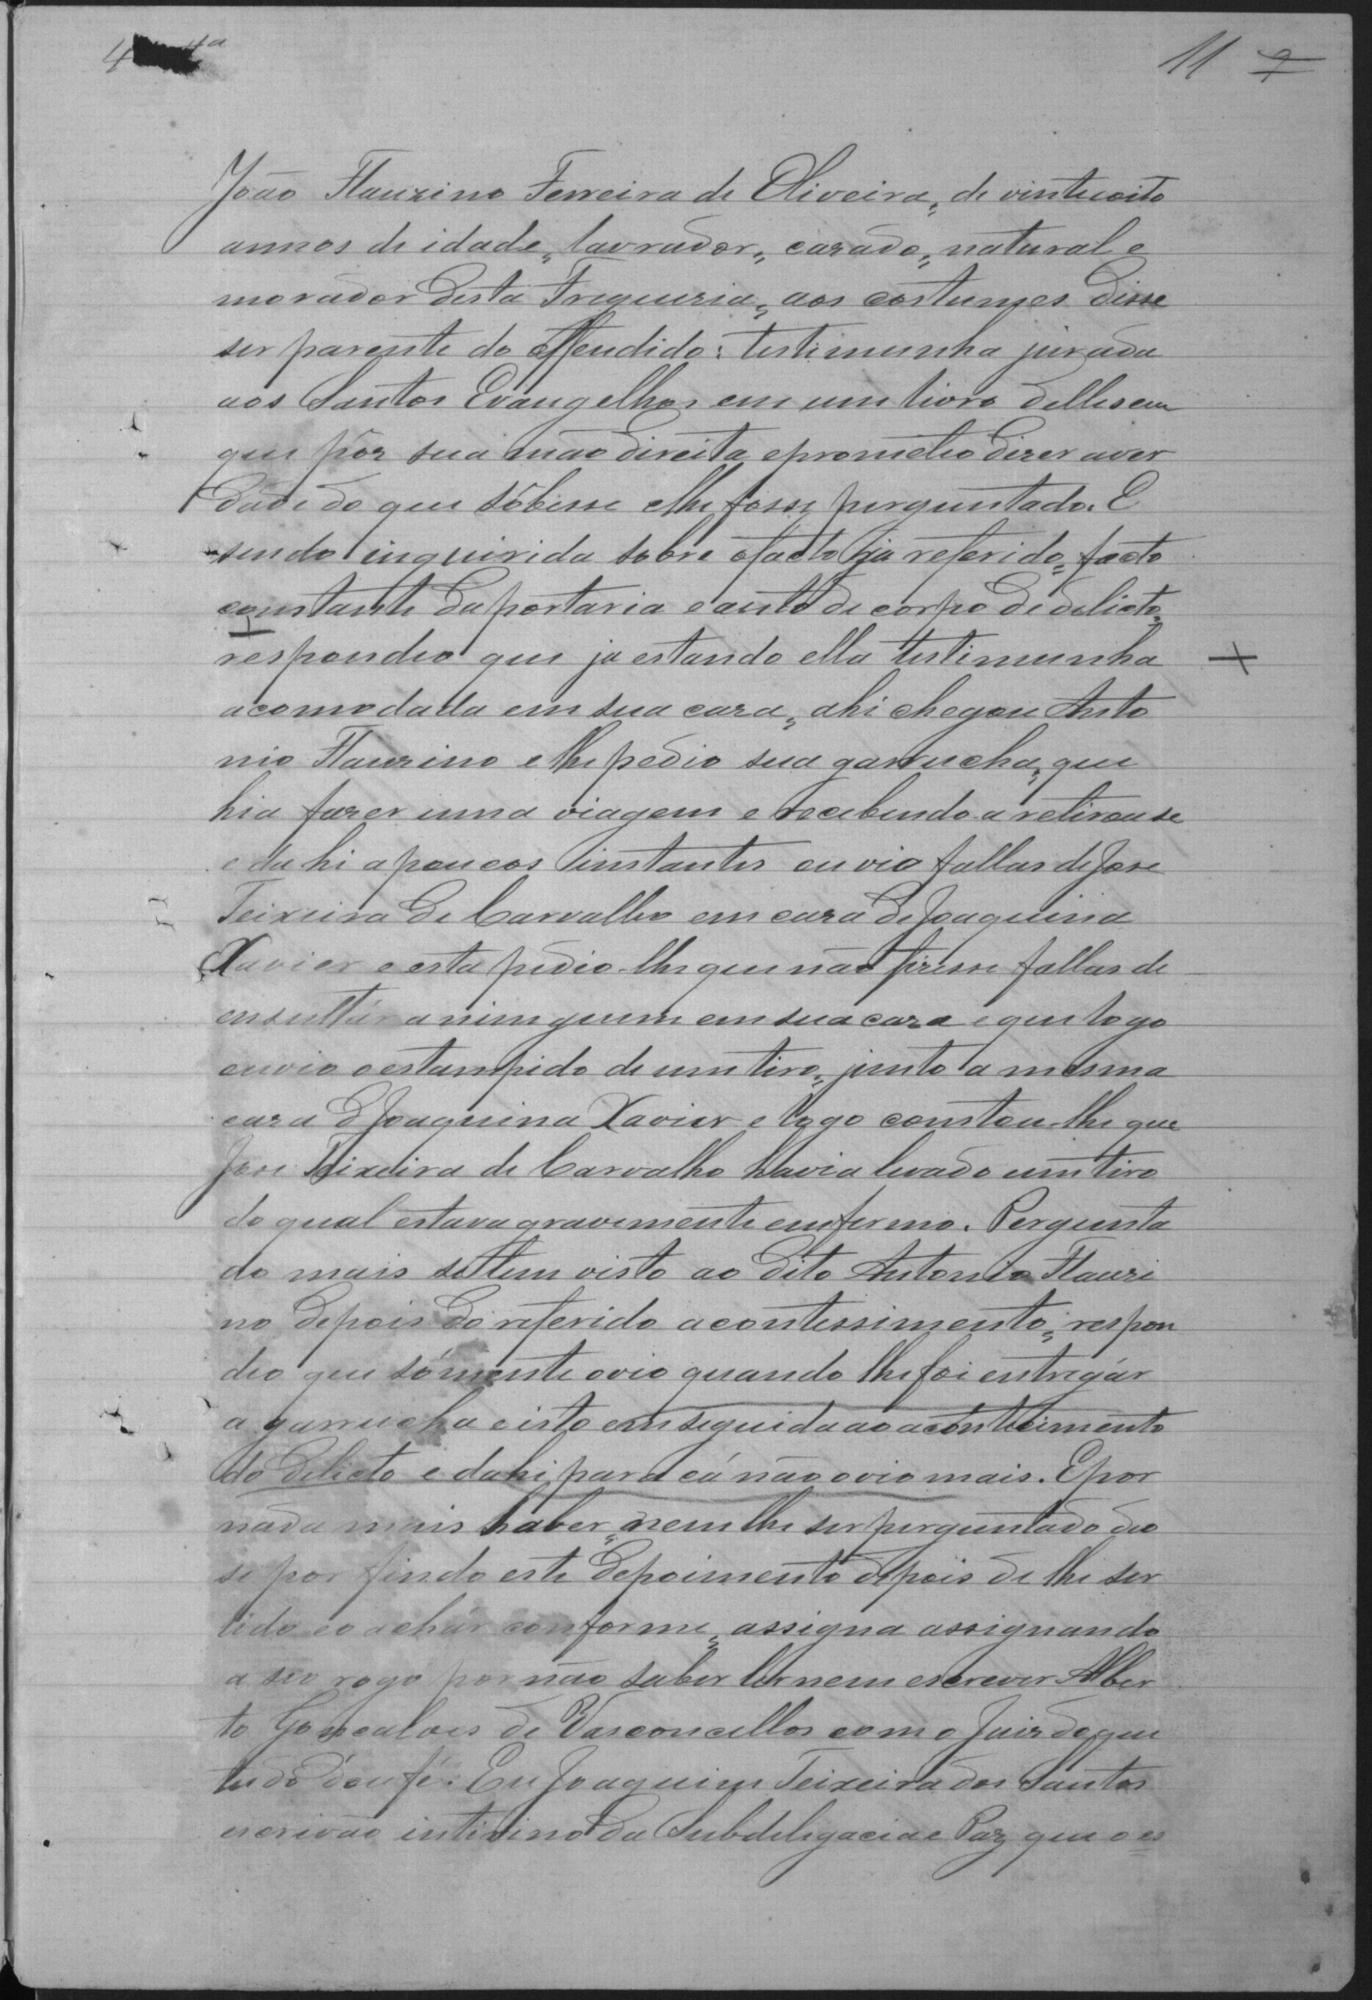 4ª
11
João Flauzino Ferreira de Oliveira, de vinteoito
annos de idade, lavrador, cazado, natural e
morador desta Freguezia, aos costumes disse
ser parente do offendido: testimunha jurada
aos Santos Evangelhos em um livro delles em
que pôz sua mão direita e prometeo dizer aver
dade do que sôbesse elhe fosse perguntado. E
sendo inquirida sobre ofacto ja referido, facto
constante da portaria e auto de corpo de delicto,
respondeo que ja estando ella testimunha
acomodada em sua caza, ahi chegou Anto
nio Flauzino e lhe pedio sua garrucha, que
hia fazer uma viagem e recebendo a retirou se
e da hi a poucos instantes ouvio fallas de Jose
Teixeira de Carvalho em caza de Joaquina
Xavier e esta pedio-lhe que não fizesse fallas de
ensultár a ninguem em sua caza e que logo
ouvio o estampido de um tiro, junto a mesma
caza de Joaquina Xavier e logo constou-lhe que
Jose Teixeira de Carvalho havia levado um tiro
do qual estava gravemente enfermo. Pergunta
do mais se tem visto ao dito Antonio Flauzi
no depois do referido acontessimento, respon
deo que sómente ovio quando lhe foi entregár
a garrucha e isto em seguida ao acontecimento
do delicto e dahi para cá não ovio mais. E por
nada mais haber, nem lhe ser perguntado deo
se por findo este depoimento depois de lhe ser
lido eo achár conforme, assigna assignando
a seo rogo por não saber ler nem escrever Alber
to Gonçalves de Vasconcellos com o Juiz do que
tudo dou fé. Eu Joaquim Teixeira dos Santos
escrivão intirino da Subdelegacia e Paz que o es